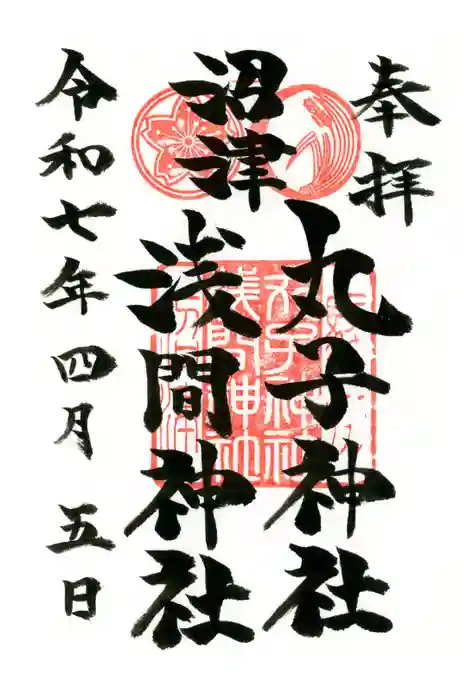 奉拝
沼津
丸子神社
浅間神社
令和七年四月五日